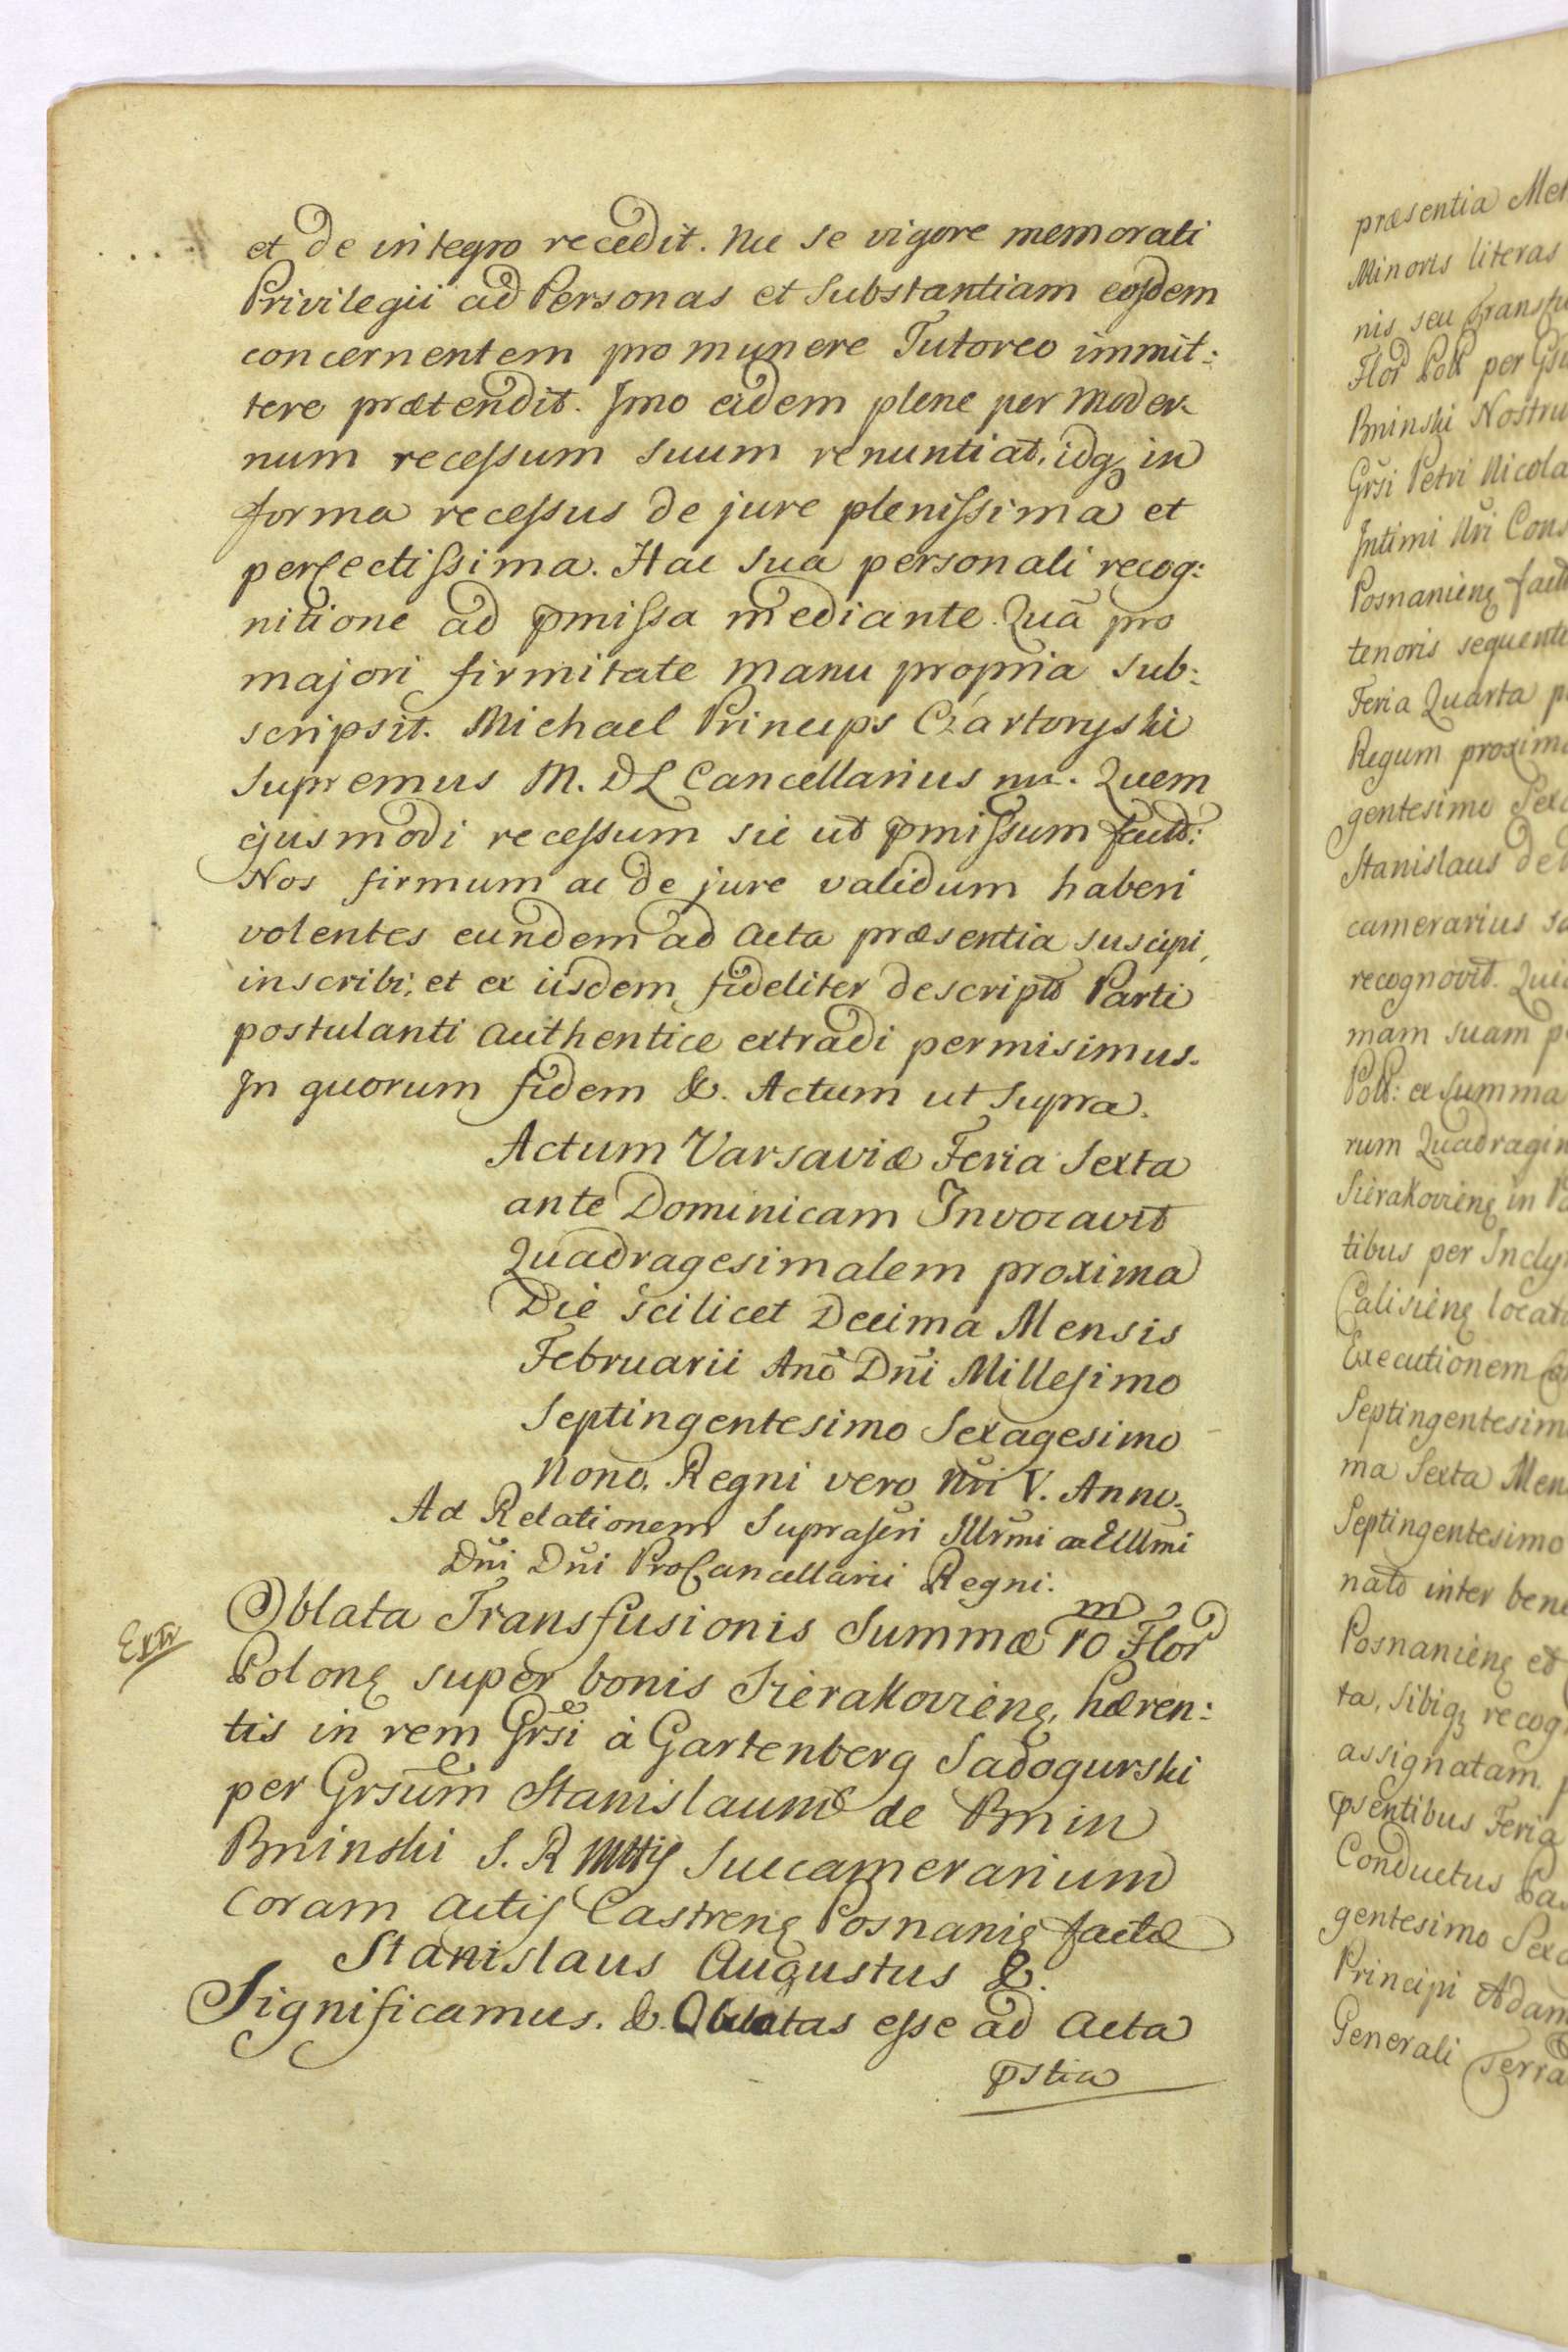 et de integro recedit. Nec se vigore memorati
Privilegii ad Personas et Substantiam eosdem
concernentem pro munere Tutoreo immit:
tere prætendit. Imo eidem plene per moder-
num recessum suum renuntiat, idq, in
forma recessus de jure plenissima et
perfectissima. Hac sua personali recog:
nitione ad pmissa mediante. Quā pro
majori firmitate manu propria sub:
scripsit. Michael Princeps Czartoryski
Supremus M. D L Cancellarius mp. Quem
ejusmodi recessum sic ut pmissum factū:
Nos firmum ac de jure validum haberi
volentes eundem ad Acta præsentia suscipi,
inscribi, et ex iisdem fideliter descriptū Parti
postulanti authentice extradi permisimus.
In quorum fidem &. Actum ut Supra.
Actum Varsaviæ Feria Sexta
ante Dominicam Invocavit
Quadragesimalem proxima
Die scilicet Decima Mensis
Februarii Anō Dñi Millesimo
Septingentesimo Sexagesimo
Nono. Regni vero Nri V. Anno.
Ad Relationem Suprascri Illrmi ac Exllmi
Dñi Dñi ProCancellarii Regni.
Extr
Oblata Transfusionis Summæ 10 m Flor
Polonę super bonis Sierakovienę, hæren:
tis in rem Grsi à Gartenberg Sadogurski
per Grsūm Stanislaum de Bnin
Bninski S. R Mttis Succamerarium
coram actis Castrenę Posnanię factæ
Stanislaus Augustus &.
Significamus. &. Oblatas esse ad Acta
pstia
præsentia
Minoris literas
nis seu
Flor Poll per
Bninski
Grsi Petri
Intimi Nri
Posnanienę
tenoris
Feria Quarta
Regum
gentesimo
Stanislaus de
camerarius
recognovit.
mam suam
Poll: ex Summa
rum
Sierakovienę in
tibus per
Calisienę
Executionem
ma Sexta
Septingentesimo
natō inter
Posnanienę et
ta, sibiq,
assignatam.
psentibus Feria
Conductus
gentesimo
Principi
Generali